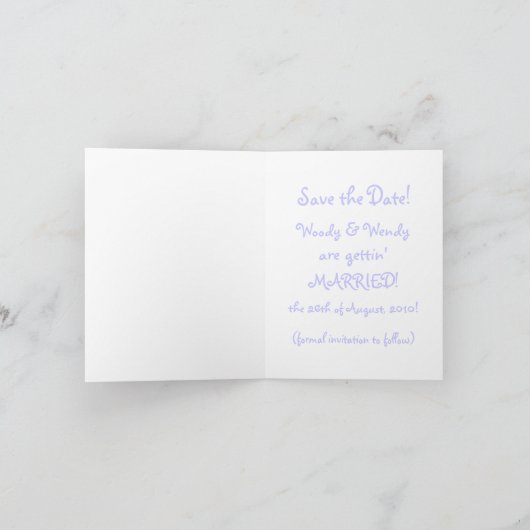 Save the Date!
Woody & Wendy
are gettin'
MARRIED!
the 26th of August, 2010!
(formal invitation to follow)